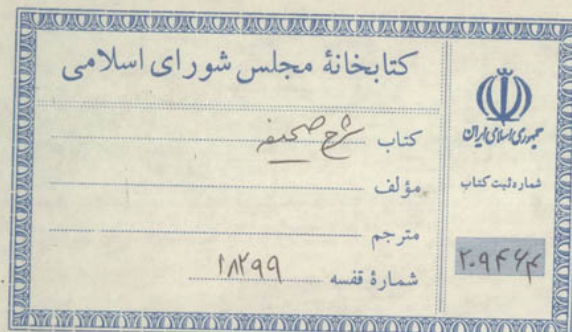 کتابخانهٔ مجلس شورای اسلامی
کتاب شرح صحیفه
مؤلف
مترجم
شمارهٔ قفسه ۱۸۲۹۹
جمهوری اسلامی ایران
شماره ثبت کتاب
۲۰۹۴۶۴